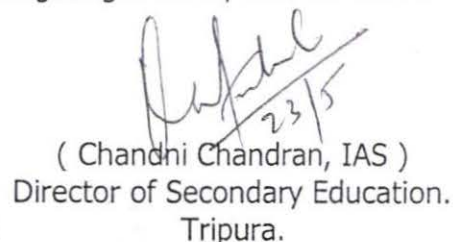 23/5
( Chandni Chandran, IAS )
Director of Secondary Education.
Tripura.